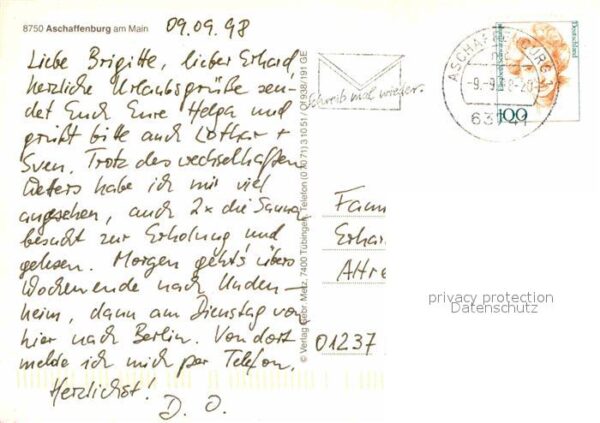 8750 Aschaffenburg am Main
09.09.98
Liebe Brigitte, lieber Erhard,
herzliche Urlaubsgrüße sen-
det Euch Eure Helga und
grüßt bitte auch Lothar +
Sven. Trotz des wechselhaften
Wetters habe ich mir viel
angesehen, auch 2x die Sauna
besucht zur Erholung und
gelesen. Morgen geht's übers
Wochenende nach
heim, dann am Dienstag von
hier nach Berlin. Von dort
melde ich mich per Telefon.
Herzlichst!
D. O.
© Verlag Gebr. Metz, 7400 Tübingen, Telefon (0 70 71) 3 10 51 / Of 938/191 GE
Schreib mal wieder
ASCHAFFENBURG 1
-9.-9.98-20
63741
Deutschland
100
Fam
Erhar
Attre
01237
privacy protection
Datenschutz